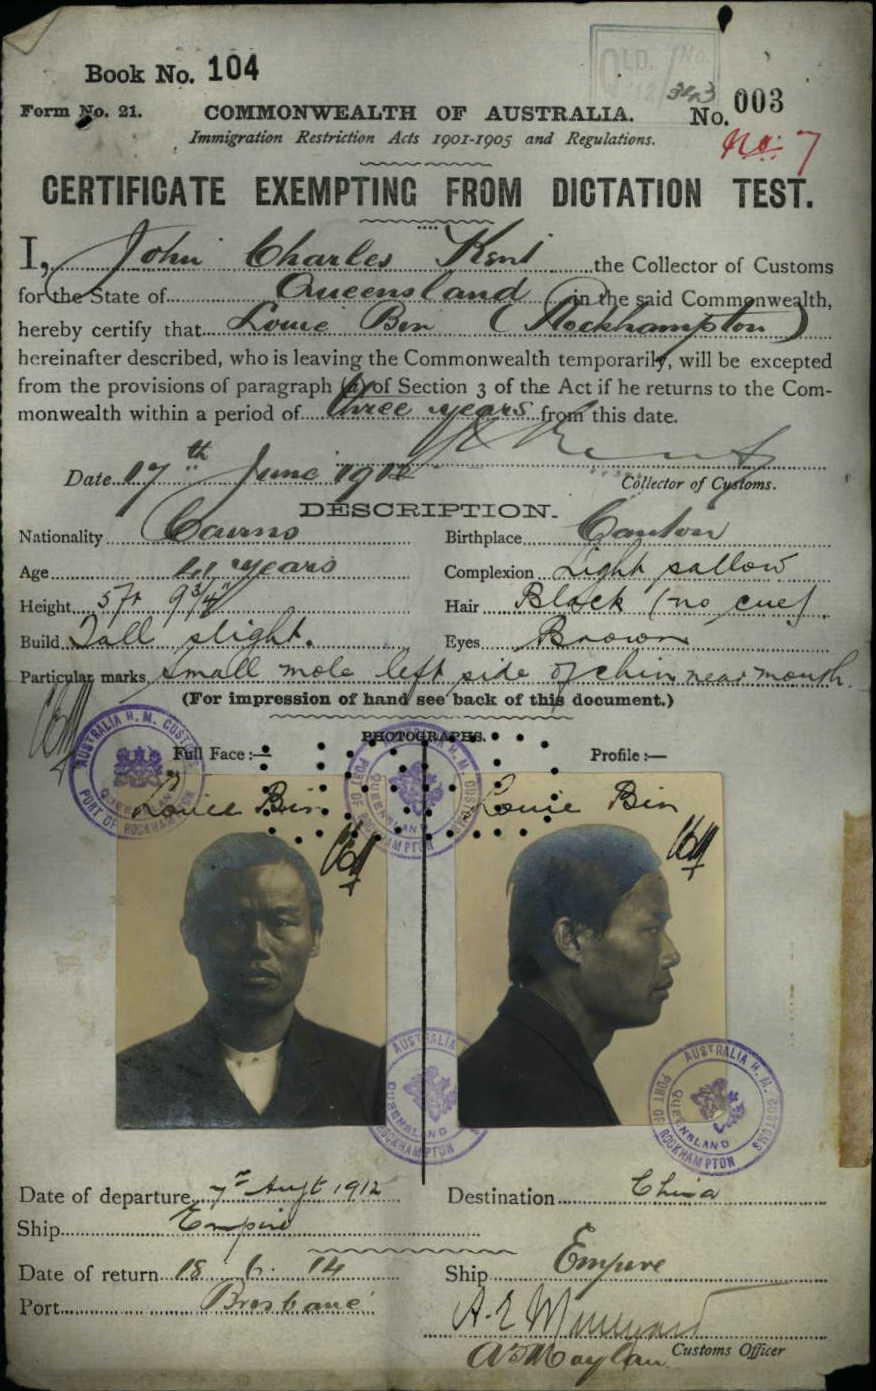 Book No. 104
QLD. No.
Form No. 21. COMMONWEALTH OF AUSTRALIA. No. 003
Immigration Restriction Acts 1901-1905 and Regulations. No. 7
CERTIFICATE EXEMPTING FROM DICTATION TEST.
I, John Charles Kent the Collector of Customs
for the State of Queensland in the said Commonwealth,
hereby certify that Louie Bin (Rockhampton)
hereinafter described, who is leaving the Commonwealth temporarily, will be excepted
from the provisions of paragraph (a) of Section 3 of the Act if he returns to the Com-
monwealth within a period of three years from this date.
Date 17th June 1912
Collector of Customs.
DESCRIPTION.
Nationality Cairns Birthplace Canton
Age 41 years Complexion Light sallow
Height 5ft 9 3/4" Hair Black (no cue).
Build Tall slight. Eyes Brown
Particular marks small mole left side of chin near mouth.
(For impression of hand see back of this document.)
PHOTOGRAPHS.
Full Face :— Profile :—
AUSTRALIA H. M. CUSTOMS PORT OF ROCKHAMPTON QUEENSLAND
AUSTRALIA H. M. CUSTOMS PORT OF ROCKHAMPTON QUEENSLAND
Louie Bin Louie Bin
AUSTRALIA QUEENSLAND ROCKHAMPTON
AUSTRALIA H. M. CUSTOMS PORT OF ROCKHAMPTON QUEENSLAND
Date of departure 7th Augt 1912 Destination China
Ship Empire
Date of return 18. 6. 14 Ship Empire
Port Brisbane
Customs Officer